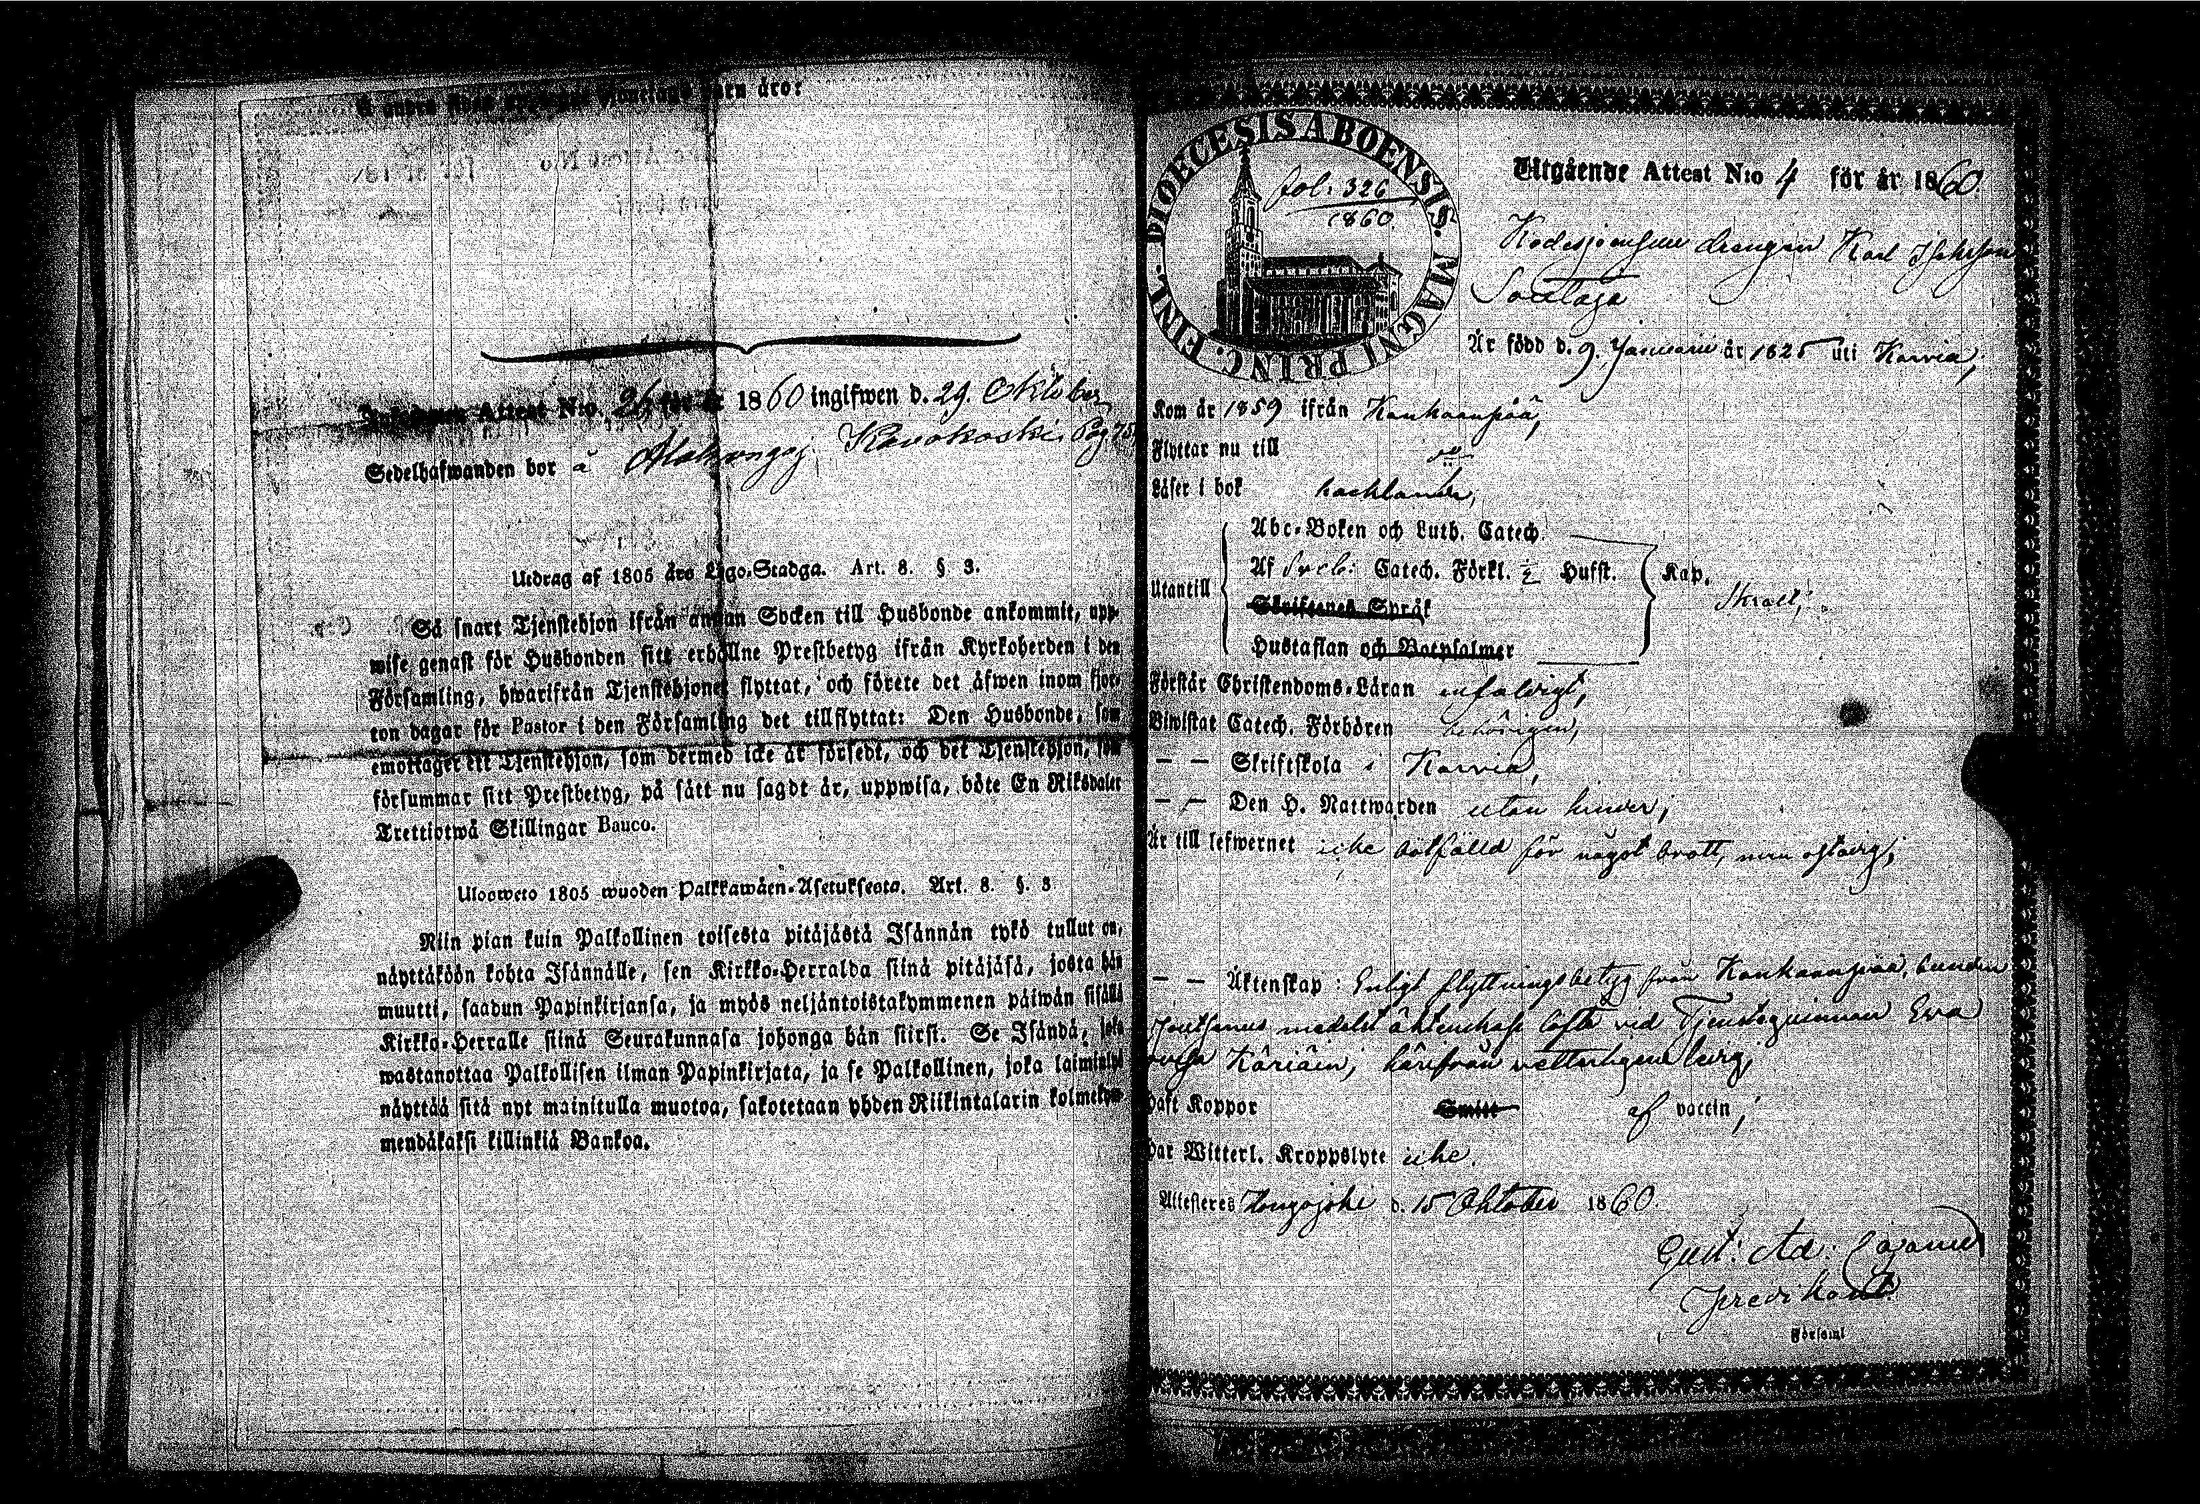 äro:
Attest N:o 26 för år 1860 ingifwen d. 29. Oktober
Sedelhafwanden bor å Alahongoj. Kavokoski. Pag 75.
Utdrag af 1805 års Lego-Stadga. Art. 8. § 3.
Så snart Tjenstehjon ifrån annan Socken till Husbonde ankommit, upp-
wise genast för Husbonden sitt erhållne Prestbetyg ifrån Kyrkoherden i den
Församling, hwarifrån Tjenstehjonet flyttat, och förete det äfwen inom fjor-
ton dagar för Pastor i den Församling det tillflyttat: Den Husbonde, som
emottager ett Tjenstehjon, som dermed icke är försedt, och det Tjenstehjon, som
försummar sitt Prestbetyg, på sätt nu sagdt är, uppwisa, böte En Riksdaler
Trettiotwå Skillingar Banco.
Ulosweto 1805 wuoden Palkkawäen-Asetuksesta. Art. 8. §. 3
Niin pian kuin Palkollinen toisesta pitäjästä Isännän tykö tullut on,
näyttäköön kohta Isännälle, sen Kirkko-Herralda siinä pitäjäsä, josta hän
muutti, saadun Papinkirjansa, ja myös neljäntoistakymmenen päiwän sisällä
Kirkko-Herralle siinä Seurakunnasa johonga hän siirsi. Se Isändä, joka
wastanottaa Palkollisen ilman Papinkirjata, ja se Palkollinen, joka laiminlyö
näyttää sitä nyt mainitulla muotoa, sakotetaan yhden Riikintalarin kolmekym-
mendäkaksi killinkiä Bankoa.
DIOECESIS ABOENSIS. MAGNI PRINC. FINL.
fol: 326
1860.
Utgående Attest N:o 4 för år 1860.
drengen Karl
Är född d. 9. Januarii år 1825 uti Karvia,
Kom år 1859 ifrån Kankaanpää,
Flyttar nu till
Läser i bok
Abc-Boken och Luth. Catech.
Af Sveb: Catech. Förkl. Hufst. Kap.
Utantill
Skriftenes Språk
Hustaflan och Botpsalmer
Förstår Christendoms-Läran enfaldigt,
Biwistat Catech. Förhören behörigen,
— — Skriftskola i Karvia,
— — Den H. Nattwarden utan hinder,
Är till lefwernet icke bötfälld för något brott, men ostadig,
— — Äktenskap: Enligt flyttningsbetyg från Kankaanpää, bunden
medelst äktenskaps löfte vid Tjenstequinnan Eva
Käriäin, härifrån vetterligen ledig,
haft Koppor Smitt af vaccin,
har Witterl. Kroppslyte icke.
Attesteras Hongojoki d. 15 Oktober 1860.
Gust: Ad:
Predikant
Församl